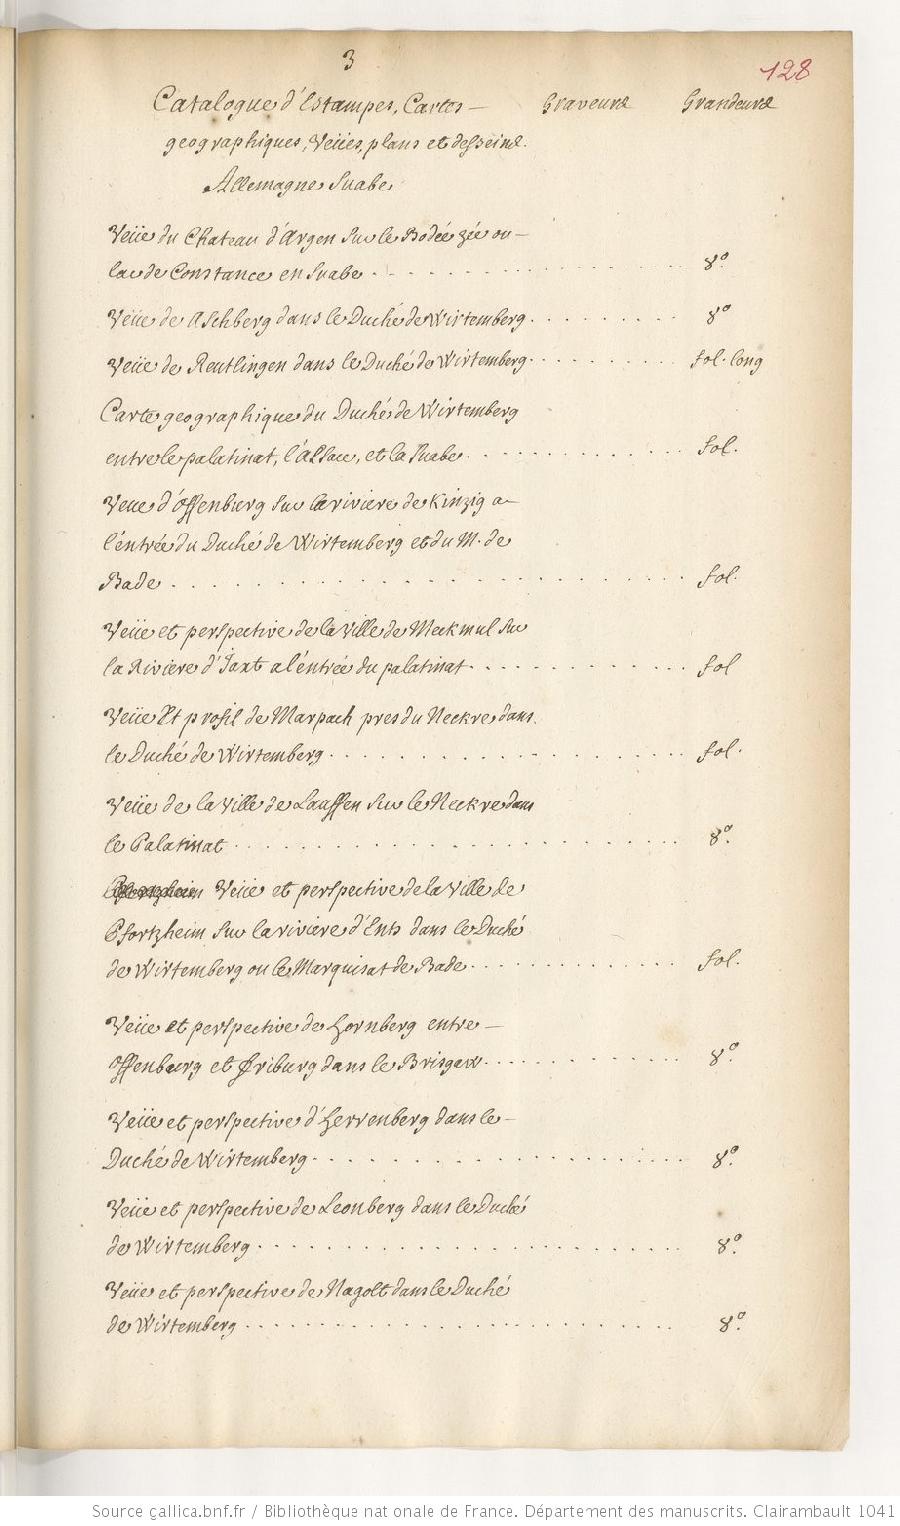 3
128
Catalogue d'Estampes, Cartes — Graveurs Grandeurs
geographiques, Veües, plans et desseins.
Allemagne Suabe
Veüe du Chateau d'Argen sur le Bodée zée ou —
lac de Constance en Suabe . . . . . . . . . . . . . . . 8º.
Veüe de Aschberg dans le Duché de Wirtemberg . . . . . . . . . 8º
Veüe de Reutlingen dans le Duché de Wirtemberg . . . . . . . . fol. long
Carte geographique du Duché de Wirtemberg
entre le palatinat, l'Alsace, et la Suabe . . . . . . . . . . . . fol.
Veue d'Offenburg sur la riviere de Kinzig a —
l'entrée du Duché de Wirtemberg et du M. de
Bade . . . . . . . . . . . . . . . . . . . . fol.
Veüe et perspective de la Ville de Meckmul sur
la Riviere d'Jaxt a l'entrée du palatinat . . . . . . . . . . . fol
Veüe Et profil de Marpach pres du Neckre dans
le Duché de Wirtemberg . . . . . . . . . . . . . . . fol.
Veüe de la Ville de Lauffen sur le Neckre dans
le Palatinat . . . . . . . . . . . . . . . . . . . 8º.
Veüe et perspective de la Ville de
Pfortzheim sur la riviere d'Ents dans le Duché
de Wirtemberg ou le Marquisat de Bade . . . . . . . . . . . fol.
Veüe et perspective de Hornberg entre —
Offenburg et Friburg dans le Brisgaw . . . . . . . . . . . 8º.
Veüe et perspective d'Herrenberg dans le —
Duché de Wirtemberg . . . . . . . . . . . . . . . . 8º.
Veüe et perspective de Leonberg dans le Duché
de Wirtemberg . . . . . . . . . . . . . . . . . . 8º.
Veüe et perspective de Nagolt dans le Duché
de Wirtemberg . . . . . . . . . . . . . . . . . . 8º.
Source gallica.bnf.fr / Bibliothèque nationale de France. Département des manuscrits. Clairambault 1041